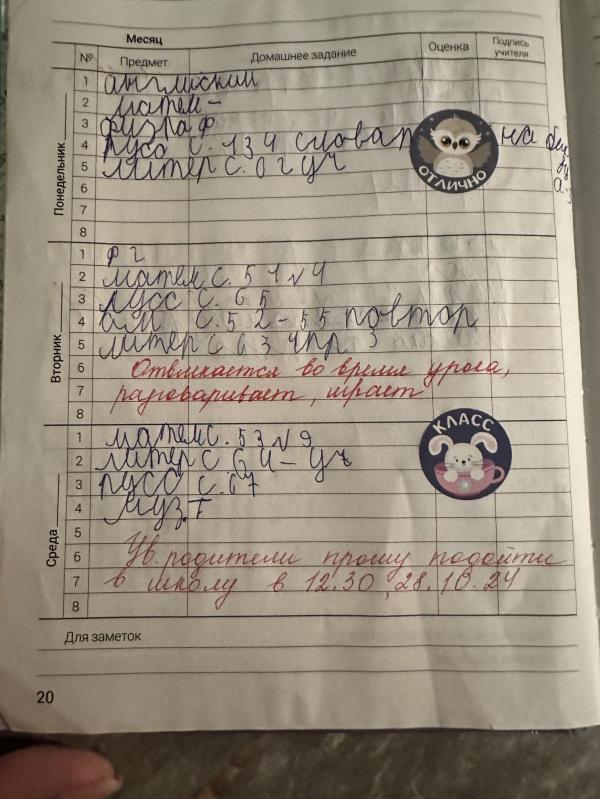 Месяц
№ Предмет Домашнее задание Оценка Подпись учителя
Понедельник
1 английский
2 матем -
3 физ
4 русс с. 134 словар на
5 литер с. учг
6
7
8
ОТЛИЧНО
Вторник
1
2 матем с. 51 №4
3 русс с. 65
4 с. 52-55 повтор
5 литер с 63 чпр 3
6 Отвлекается во время урока,
7 разговаривает, играет
8
Среда
1 матем с. 53 №9
2 литер с 64 - уч
3 русс с. 67
4 муз. Т
5
6 Ув. родители прошу подойти
7 в школу в 12.30, 28.10.24
8
КЛАСС
Для заметок
20